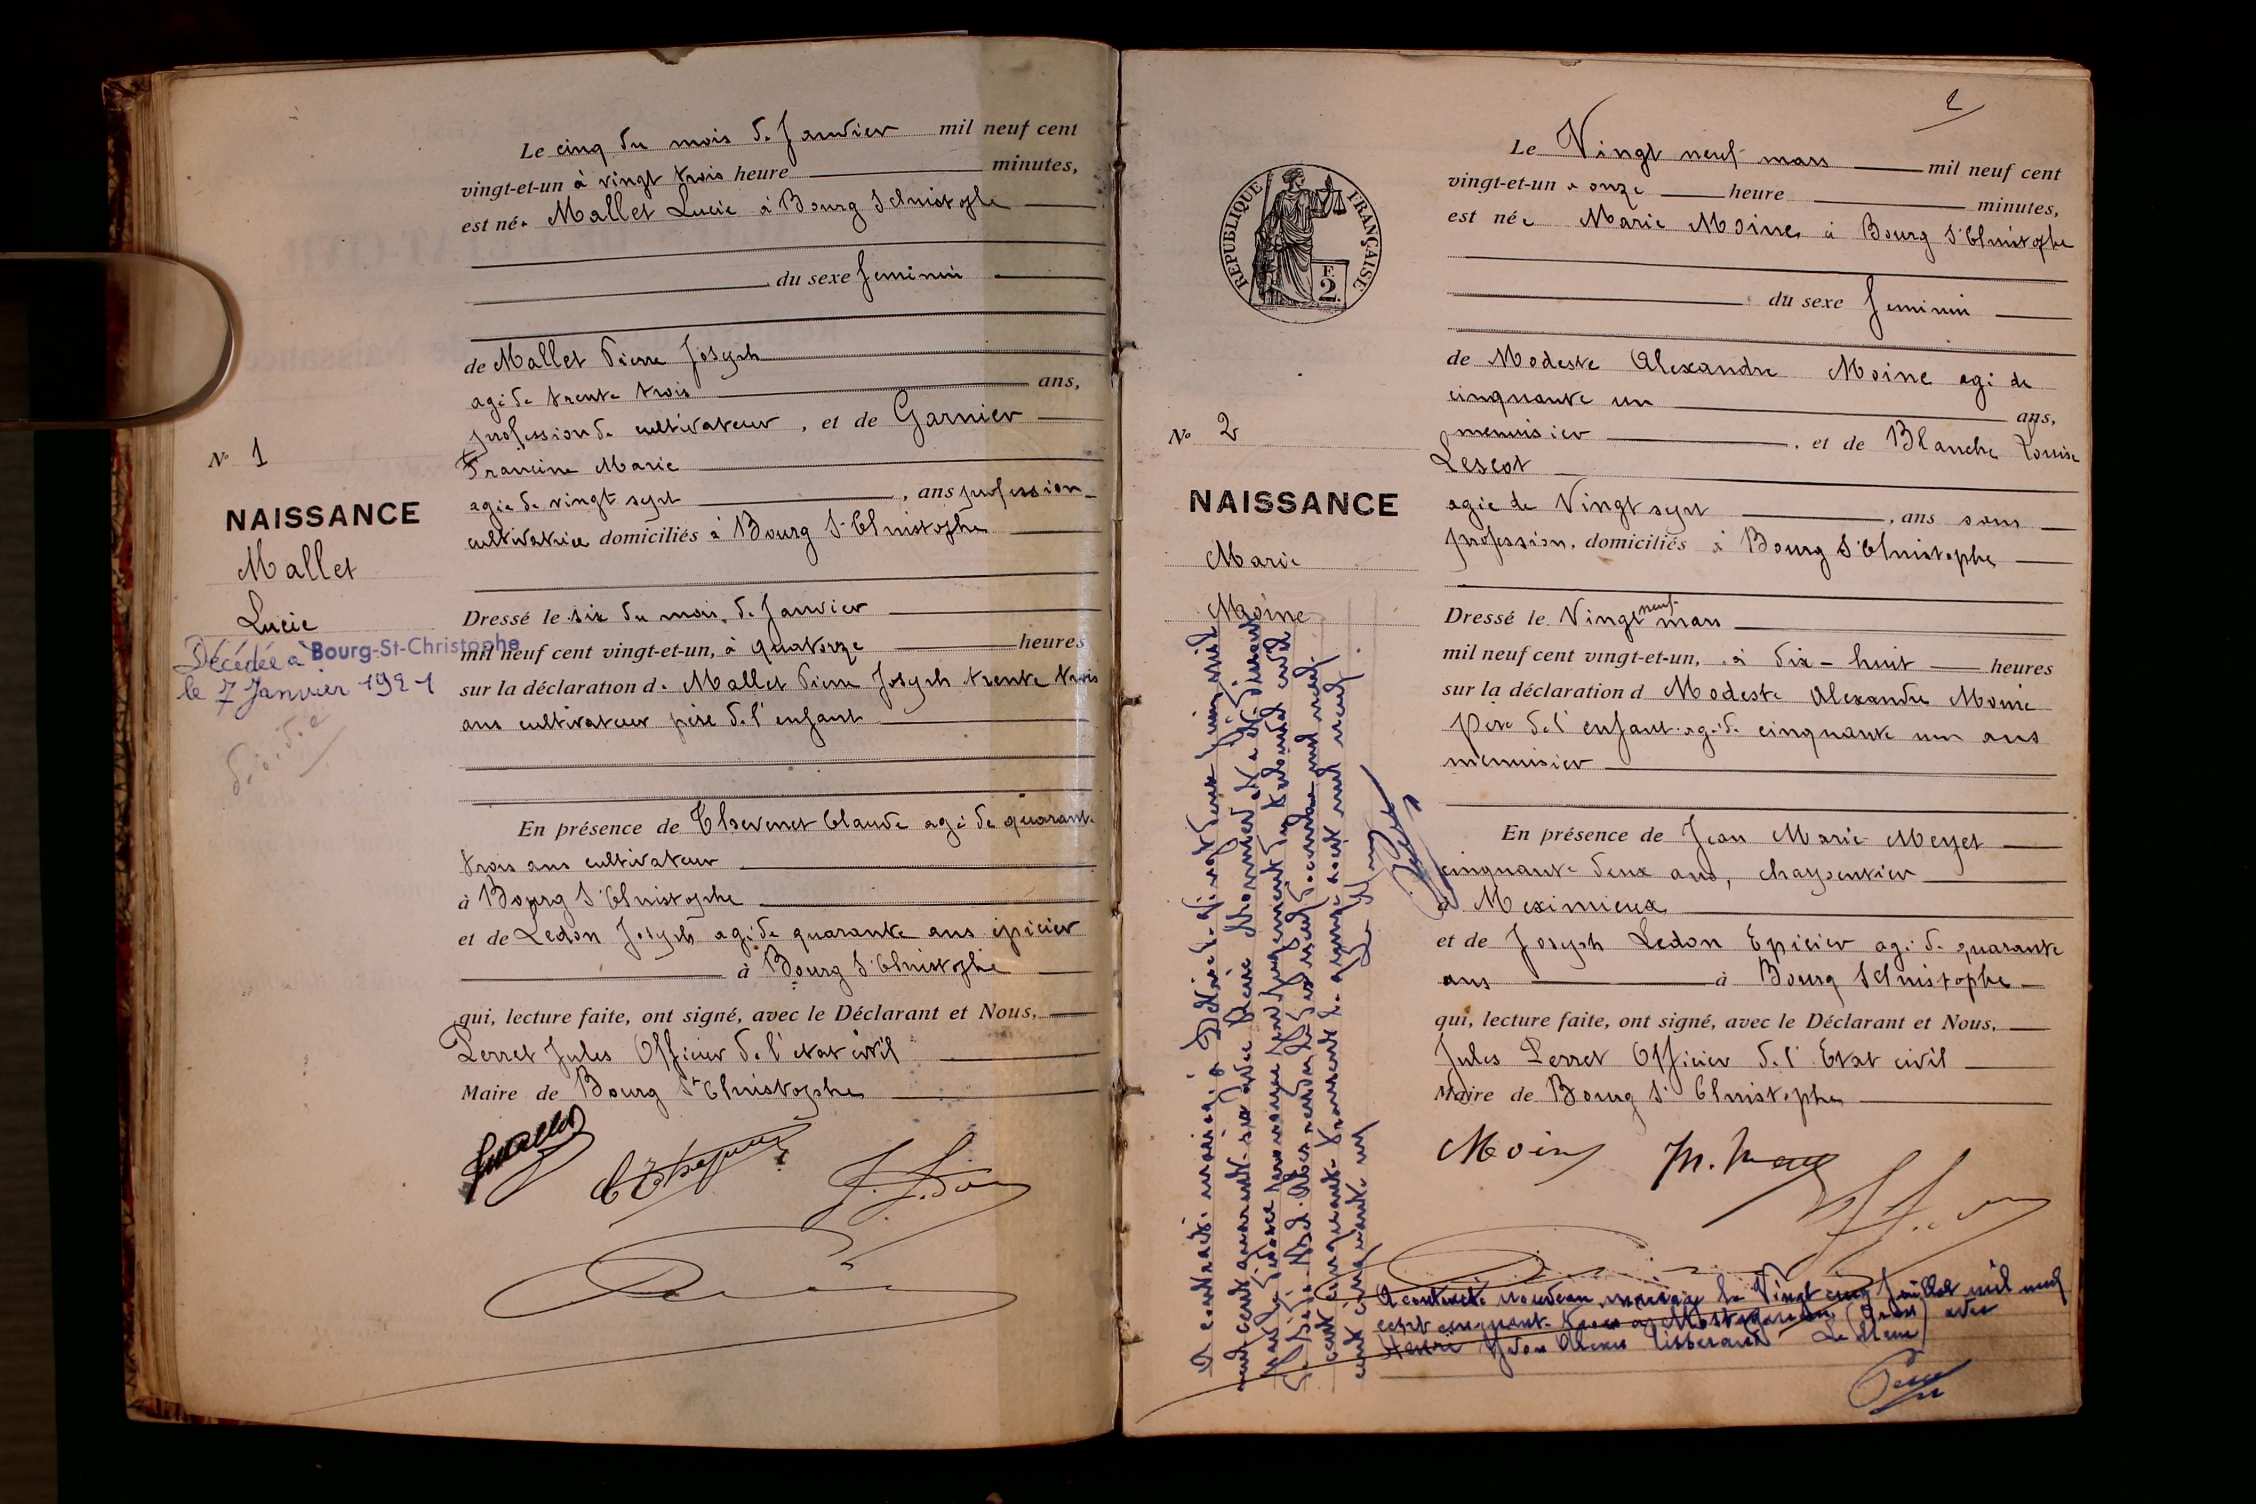 Le cinq du mois de Janvier mil neuf cent
vingt-et-un à vingt trois heure minutes,
est née Mallet Lucie à Bourg St Christophe
du sexe feminin
de Mallet Pierre Joseph
agé de trente trois ans,
profession de cultivateur, et de Garnier
Francine Marie
agée de vingt sept, ans profession
cultivatrice domiciliés à Bourg St Christophe
Dressé le six du mois de Janvier
mil neuf cent vingt-et-un, à quatorze heures
sur la déclaration de Mallet Pierre Joseph trente trois
ans cultivateur père de l'enfant
En présence de Thevenet Claude agé de quarante
trois ans cultivateur
à Bourg St Christophe
et de Ledon Joseph agé de quarante ans épicier
à Bourg St Christophe
qui, lecture faite, ont signé, avec le Déclarant et Nous,
Perret Jules Officier de l'etat civil
Maire de Bourg St Christophe
No 1
NAISSANCE
Mallet
Lucie
Décédée à Bourg-St-Christophe
le 7 Janvier 1921
décédée
2
Le Vingt neuf mars mil neuf cent
vingt-et-un à onze heure minutes,
est née Marie Moine à Bourg St Christophe
du sexe feminin
de Modeste Alexandre Moine agé de
cinquante un ans,
menuisier, et de Blanche Louise
Lescot
agée de Vingt sept, ans sans
profession, domiciliés à Bourg St Christophe
Dressé le Vingt neuf mars
mil neuf cent vingt-et-un, à dix-huit heures
sur la déclaration d Modeste Alexandre Moine
Père de l'enfant agé de cinquante un ans
menuisier
En présence de Jean Marie Meyet
cinquante deux ans, charpentier
à Meximieux
et de Joseph Ledon Epicier agé de quarante
ans à Bourg St Christophe
qui, lecture faite, ont signé, avec le Déclarant et Nous,
Jules Perret Officier de l'Etat civil
Maire de Bourg St Christophe
Moine
RÉPUBLIQUE FRANÇAISE
F.
2.
No 2
NAISSANCE
Marie
Moine
A contracté mariage à
neuf cent quarante six avec
jugement du tribunal civil
cent cinquante
cent cinquante un
Le Maire
A contracté nouveau mariage le Vingt cinq Juillet mil neuf
cent cinquante trois à Mostaganem (Oran) avec
Henri Yvon Alexis Le Maire